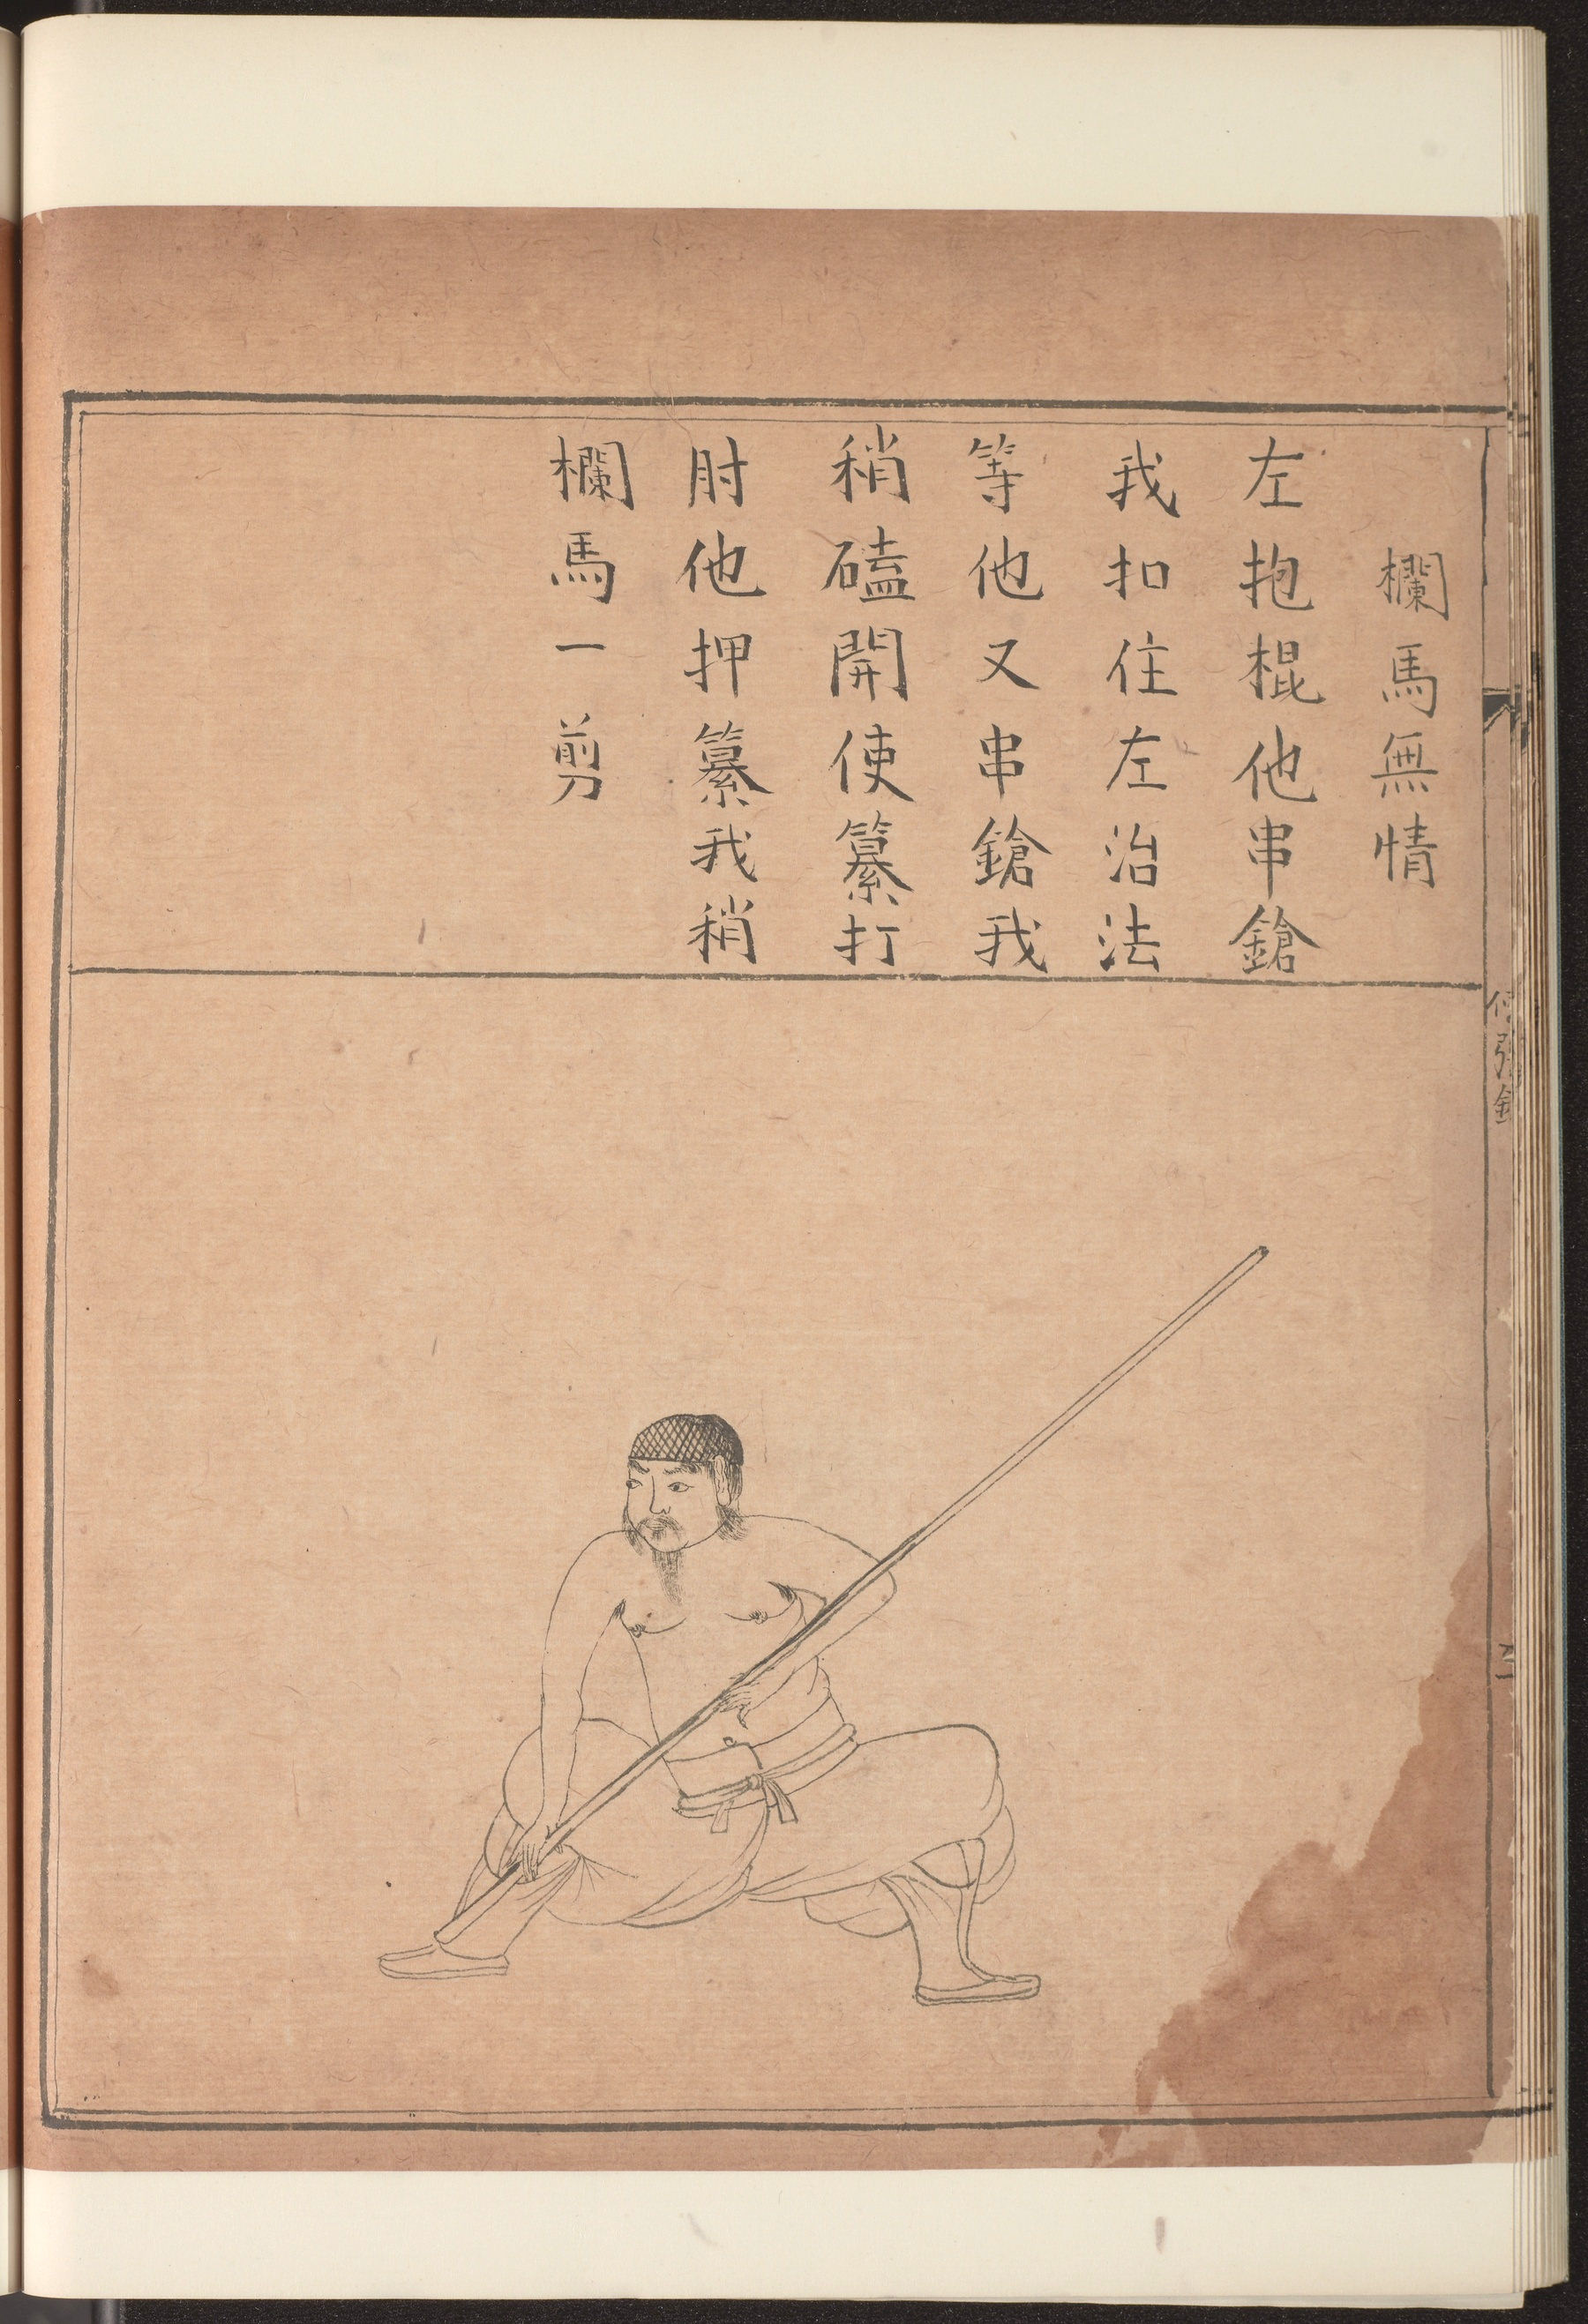 欄馬無情
左抱棍他串鎗
我扣住左治法
等他又串鎗我
稍磕開使纂打
肘他押纂我稍
欄馬一剪